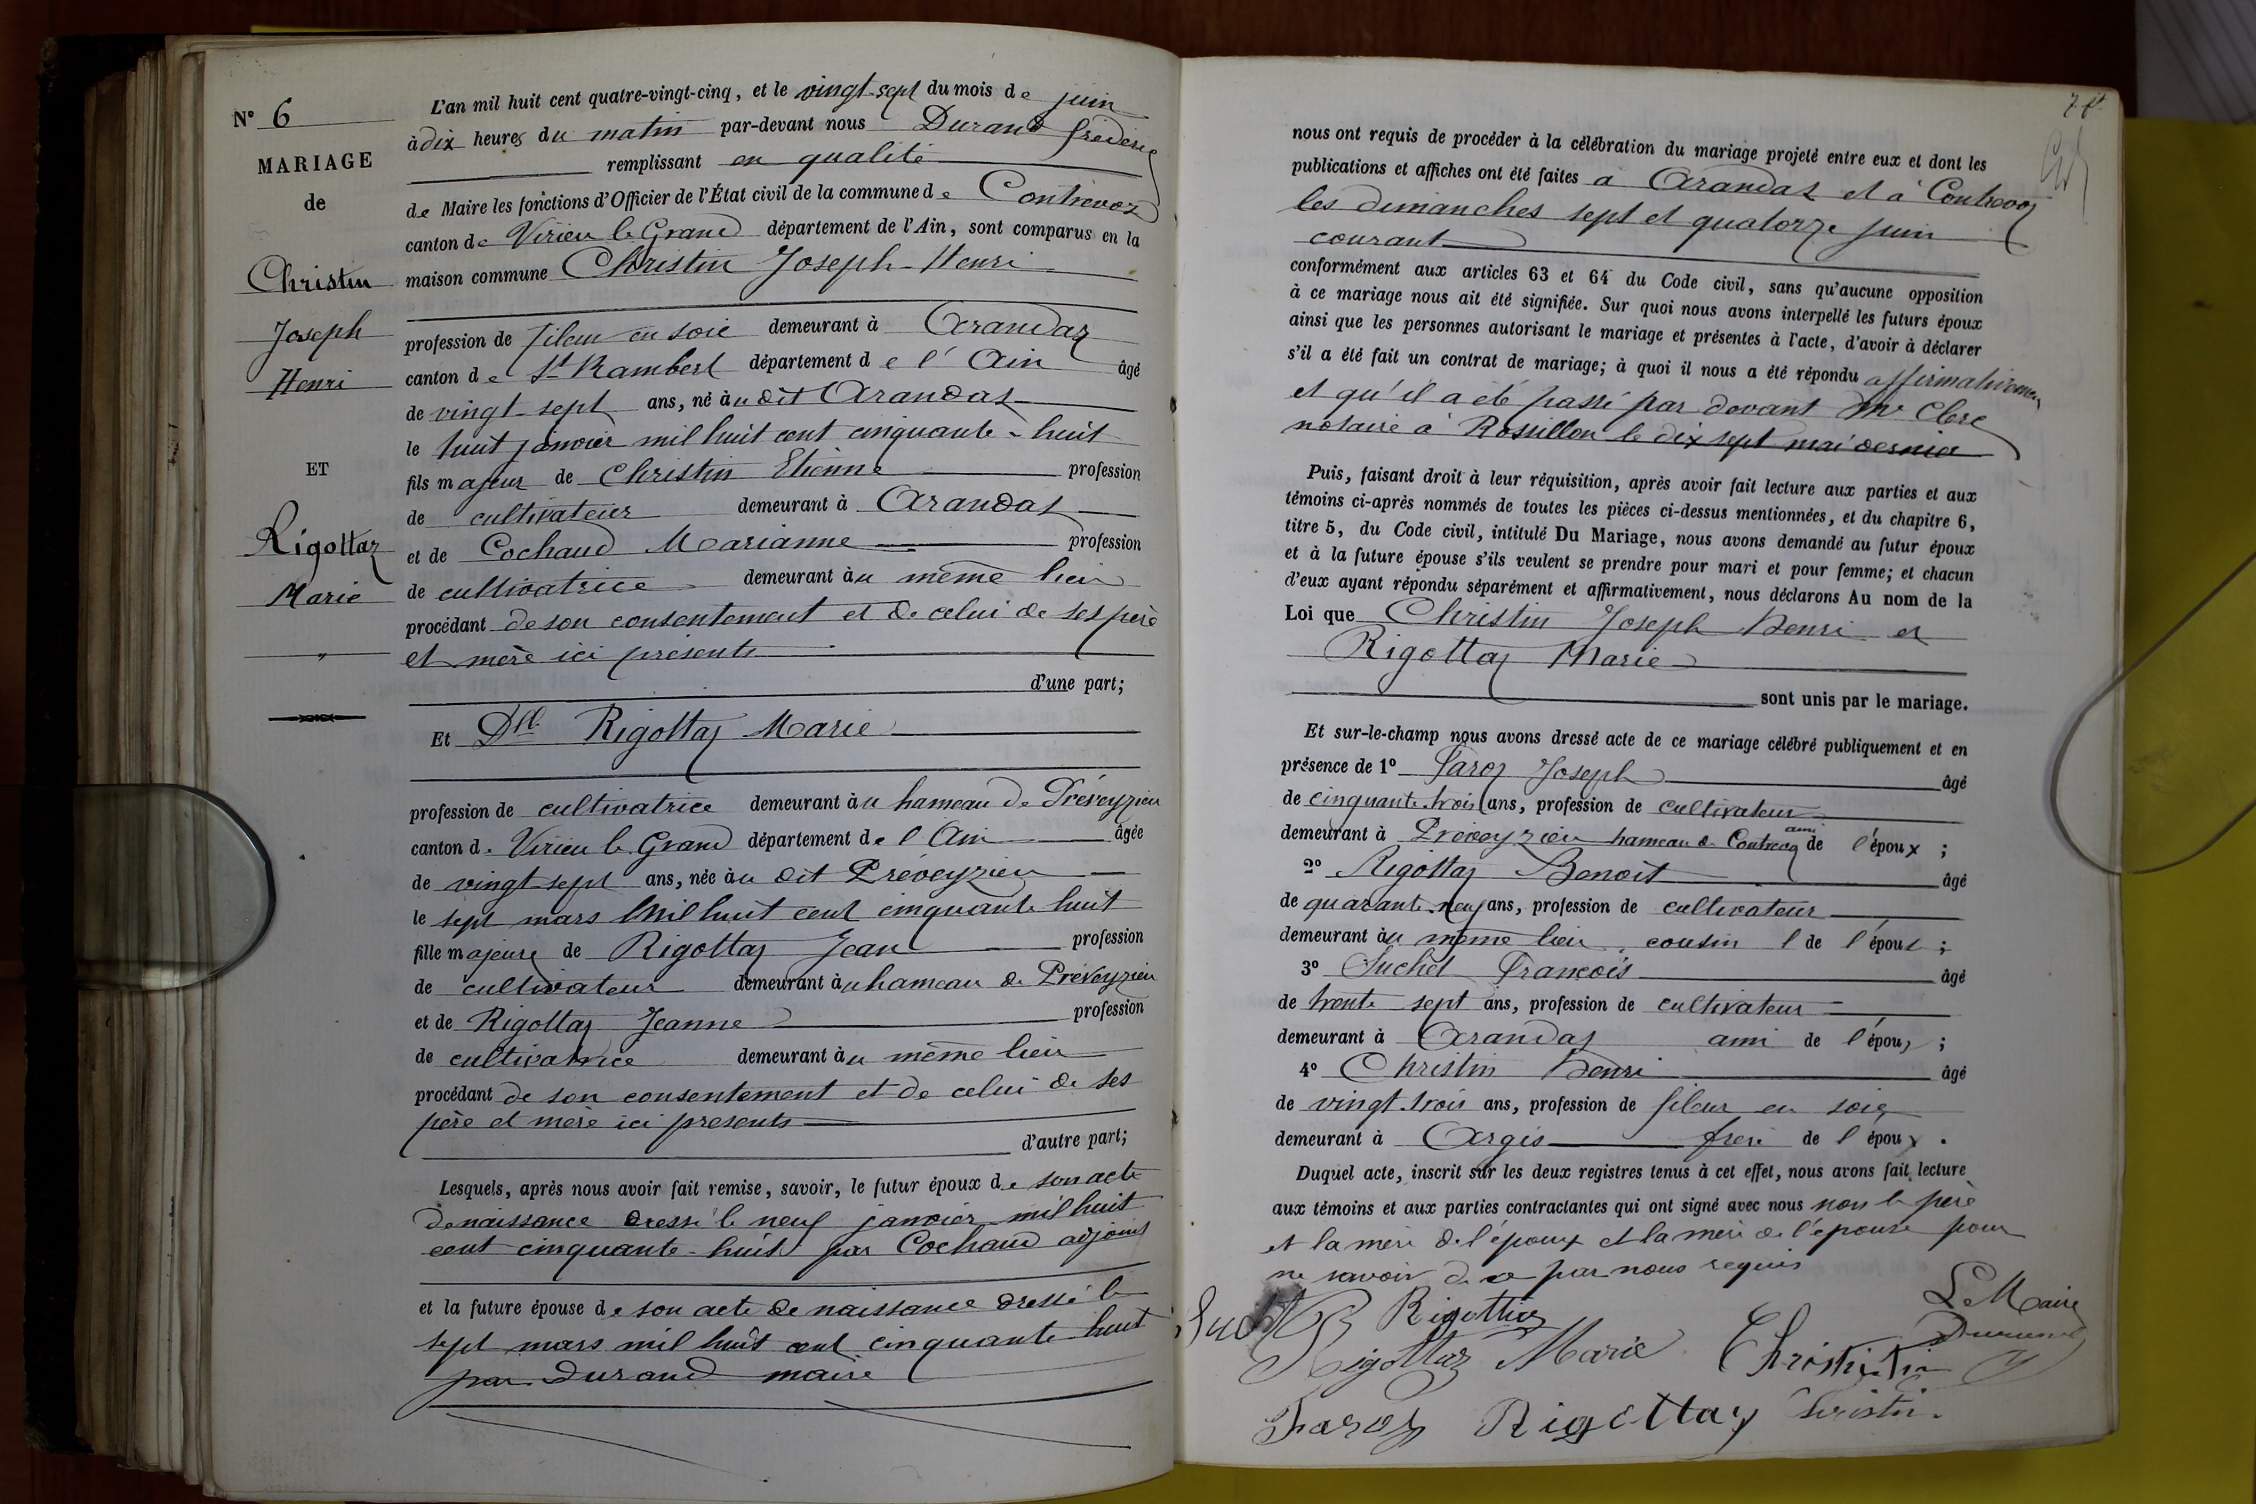 N° 6
MARIAGE
de
Christin
Joseph
Henri
ET
Rigottaz
Marie
L'an mil huit cent quatre-vingt-cinq, et le vingt-sept du mois de juin
à dix heures du matin par-devant nous Durand frédéric
remplissant en qualité
de Maire les fonctions d'Officier de l'État civil de la commune de Contrevoz
canton de Virieu le Grand département de l'Ain, sont comparus en la
maison commune Christin Joseph-Henri
profession de fileur en soie demeurant à Arandaz
canton de St Rambert département de l'Ain âgé
de vingt-sept ans, né àu dit Arandaz
le huit janvier mil huit cent cinquante-huit
fils majeur de Christin Etienne profession
de cultivateur demeurant à Arandaz
et de Cochaud Marianne profession
de cultivatrice demeurant àu même lieu
procédant de son consentement et de celui de ses père
et mère ici présents
d'une part;
Et Dlle Rigottaz Marie
profession de cultivatrice demeurant àu hameau de Préveyzieu
canton de Virieu le Grand département de l'Ain âgée
de vingt sept ans, née àu dit Préveyzieu
le sept mars mil huit cent cinquante huit
fille majeure de Rigottaz Jean profession
de cultivateur demeurant àu hameau de Préveyzieu
et de Rigottaz Jeanne profession
de cultivatrice demeurant àu même lieu
procédant de son consentement et de celui de ses
père et mère ici présents
d'autre part;
Lesquels, après nous avoir fait remise, savoir, le futur époux de son acte
de naissance dressé le neuf janvier mil huit
cent cinquante-huit par Cochaud adjoint
et la future épouse de son acte de naissance dressé le
sept mars mil huit cent cinquante huit
par Durand maire
nous ont requis de procéder à la célébration du mariage projeté entre eux et dont les
publications et affiches ont été faites à Arandaz et à Contrevoz
les dimanches sept et quatorze juin
courant
conformément aux articles 63 et 64 du Code civil, sans qu'aucune opposition
à ce mariage nous ait été signifiée. Sur quoi nous avons interpellé les futurs époux
ainsi que les personnes autorisant le mariage et présentes à l'acte, d'avoir à déclarer
s'il a été fait un contrat de mariage; à quoi il nous a été répondu affirmativement
et qu'il a été passé par devant Me Clerc
notaire à Rossillon le dix sept mai dernier
Puis, faisant droit à leur réquisition, après avoir fait lecture aux parties et aux
témoins ci-après nommés de toutes les pièces ci-dessus mentionnées, et du chapitre 6,
titre 5, du Code civil, intitulé Du Mariage, nous avons demandé au futur époux
et à la future épouse s'ils veulent se prendre pour mari et pour femme; et chacun
d'eux ayant répondu séparément et affirmativement, nous déclarons Au nom de la
Loi que Christin Joseph Henri et
Rigottaz Marie
sont unis par le mariage.
Et sur-le-champ nous avons dressé acte de ce mariage célébré publiquement et en
présence de 1° Faroz Joseph âgé
de cinquante-trois ans, profession de cultivateur
demeurant à Préveyzieu hameau de Contrevoz ami de l'époux ;
2° Rigottaz Benoît âgé
de quarante-neuf ans, profession de cultivateur
demeurant àu même lieu cousin de l'épous ;
3° Suchet François âgé
de trente sept ans, profession de cultivateur
demeurant à Arandaz ami de l'époux ;
4° Christin Henri âgé
de vingt trois ans, profession de fileur en soie
demeurant à Argis frère de l'époux .
Duquel acte, inscrit sur les deux registres tenus à cet effet, nous avons fait lecture
aux témoins et aux parties contractantes qui ont signé avec nous non le père
et la mère de l'époux et la mère de l'épouse pour
ne savoir de ce par nous requis
Rigottaz
Le Maire
Durand
Rigottaz Marie
Christin
Faroz Rigottaz Christin